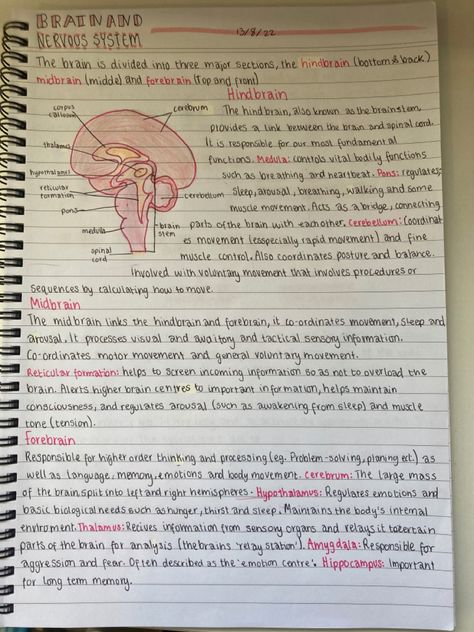 BRAIN AND
NERVOUS SYSTEM
13/8/22
The brain is divided into three major sections, the hindbrain (bottom & back)
midbrain (middle) and forebrain (top and front)
Hindbrain
corpus
callosum
cerebrum
thalamus
hypothalamus
reticular
formation
pons
medulla
spinal
cord
cerebellum
brain
stem
The hindbrain, also known as the brainstem
provides a link between the brain and spinal cord.
It is responsible for our most fundamental
functions. Medula: controls vital bodily functions
such as breathing and heartbeat. Pons: regulates
sleep, arousal, breathing, walking and some
muscle movement. Acts as a bridge, connecting
parts of the brain with each other. Cerebellum: Coordinat
es movement (esspecially rapid movement) and fine
muscle control. Also coordinates posture and balance.
Involved with voluntary movement that involves procedures or
sequences by calculating how to move.
Midbrain
The midbrain links the hindbrain and forebrain, it co-ordinates movement, sleep and
arousal. It processes visual and auditory and tactical sensory information.
Co-ordinates motor movement and general voluntary movement.
Reticular formation: helps to screen incoming information so as not to overload the
brain. Alerts higher brain centres to important information, helps maintain
consciousness, and regulates arousal (such as awakening from sleep) and muscle
tone (tension).
Forebrain
Responsible for higher order thinking and processing (eg. Problem-solving, planing ect.) as
well as language, memory, emotions and body movement. Cerebrum: The large mass
of the brain split into left and right hemispheres. Hypothalamus: Regulates emotions and
basic biological needs such as hunger, thirst and sleep. Maintains the body's internal
enviroment. Thalamus: Recives information from sensory organs and relays it to certain
parts of the brain for analysis (the brains 'relay station'). Amygdala: Responsible for
aggression and fear. Often described as the 'emotion centre'. Hippocampus: Important
for long term memory.